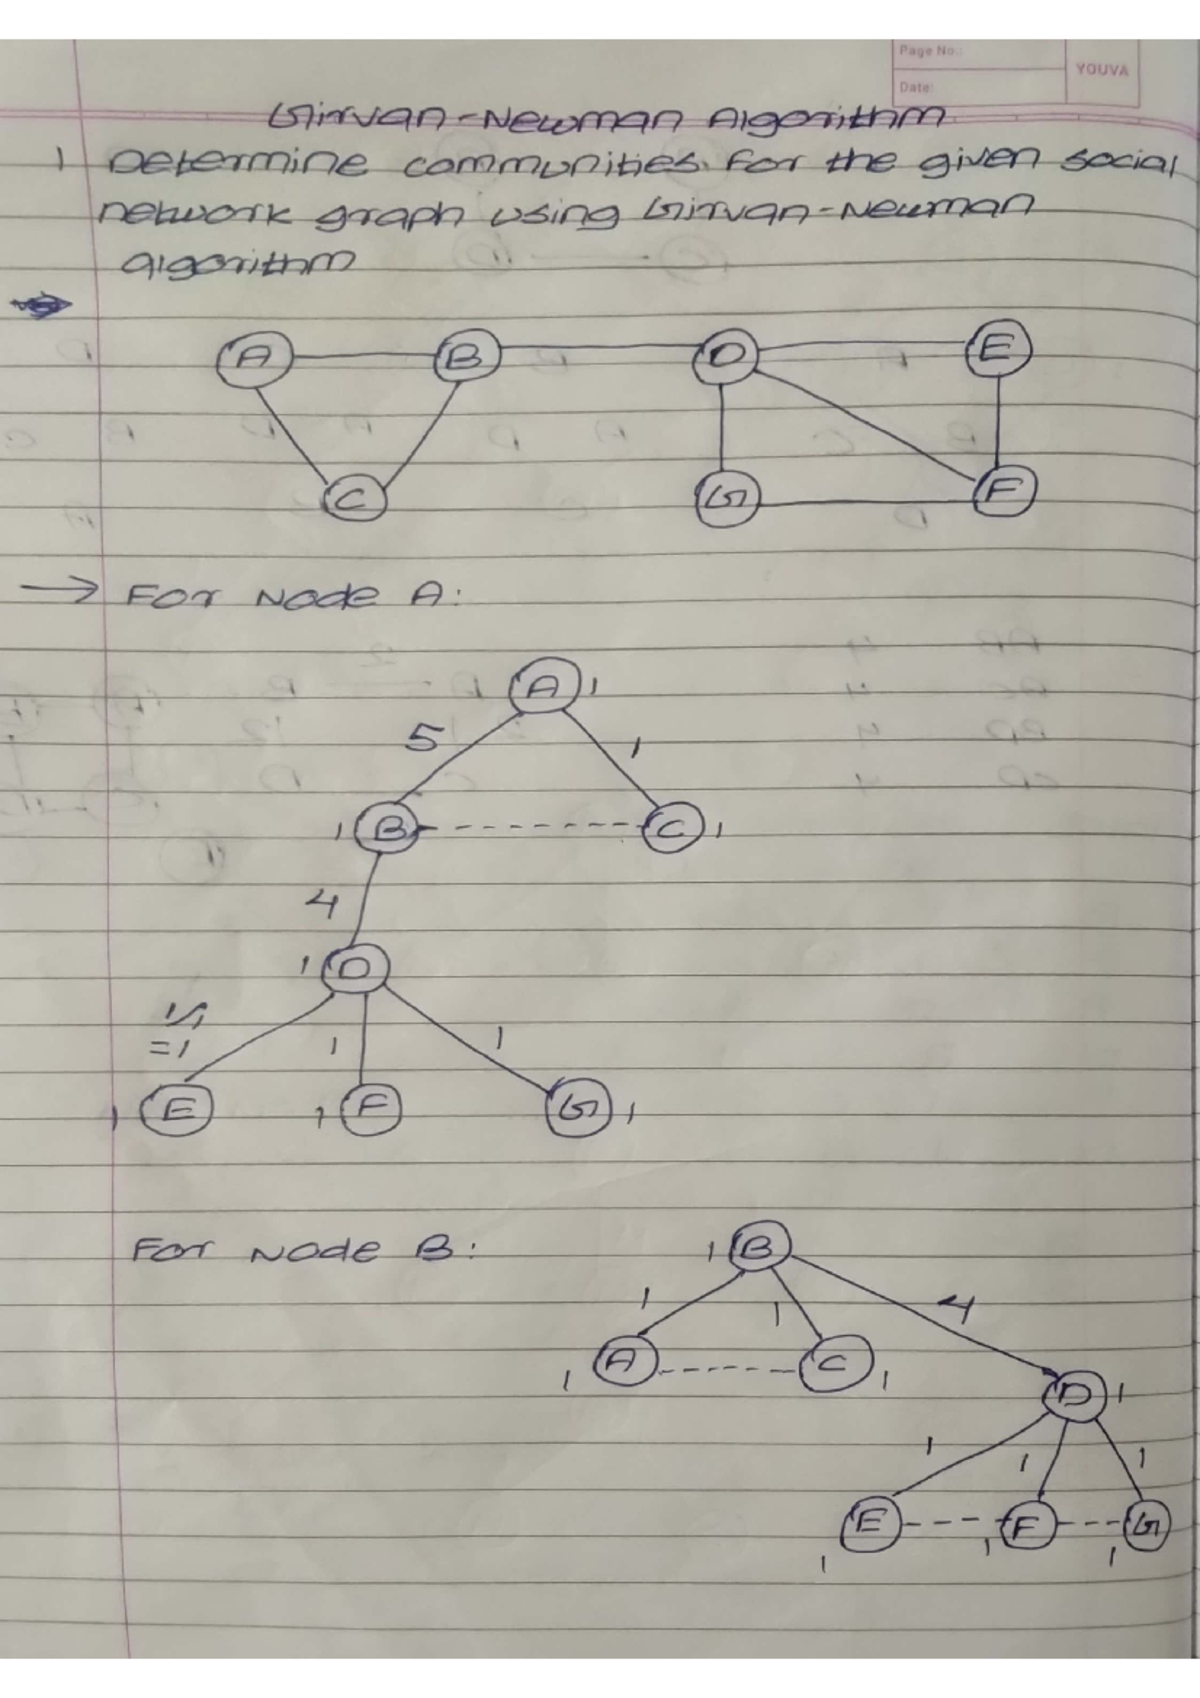 Page No.:
YOUVA
Date:
Girvan-Newman Algorithm
1 Determine communities for the given social
network graph using Girvan-Newman
algorithm
A B D E
C G F
→ For Node A:
A 1
5 1
1 B C 1
4
1 D
1/1
=1 1 1
1 E 1 F G 1
For Node B: 1 B
1 1 4
1 A C 1
D 1
1 1 1
E F G
1 1 1